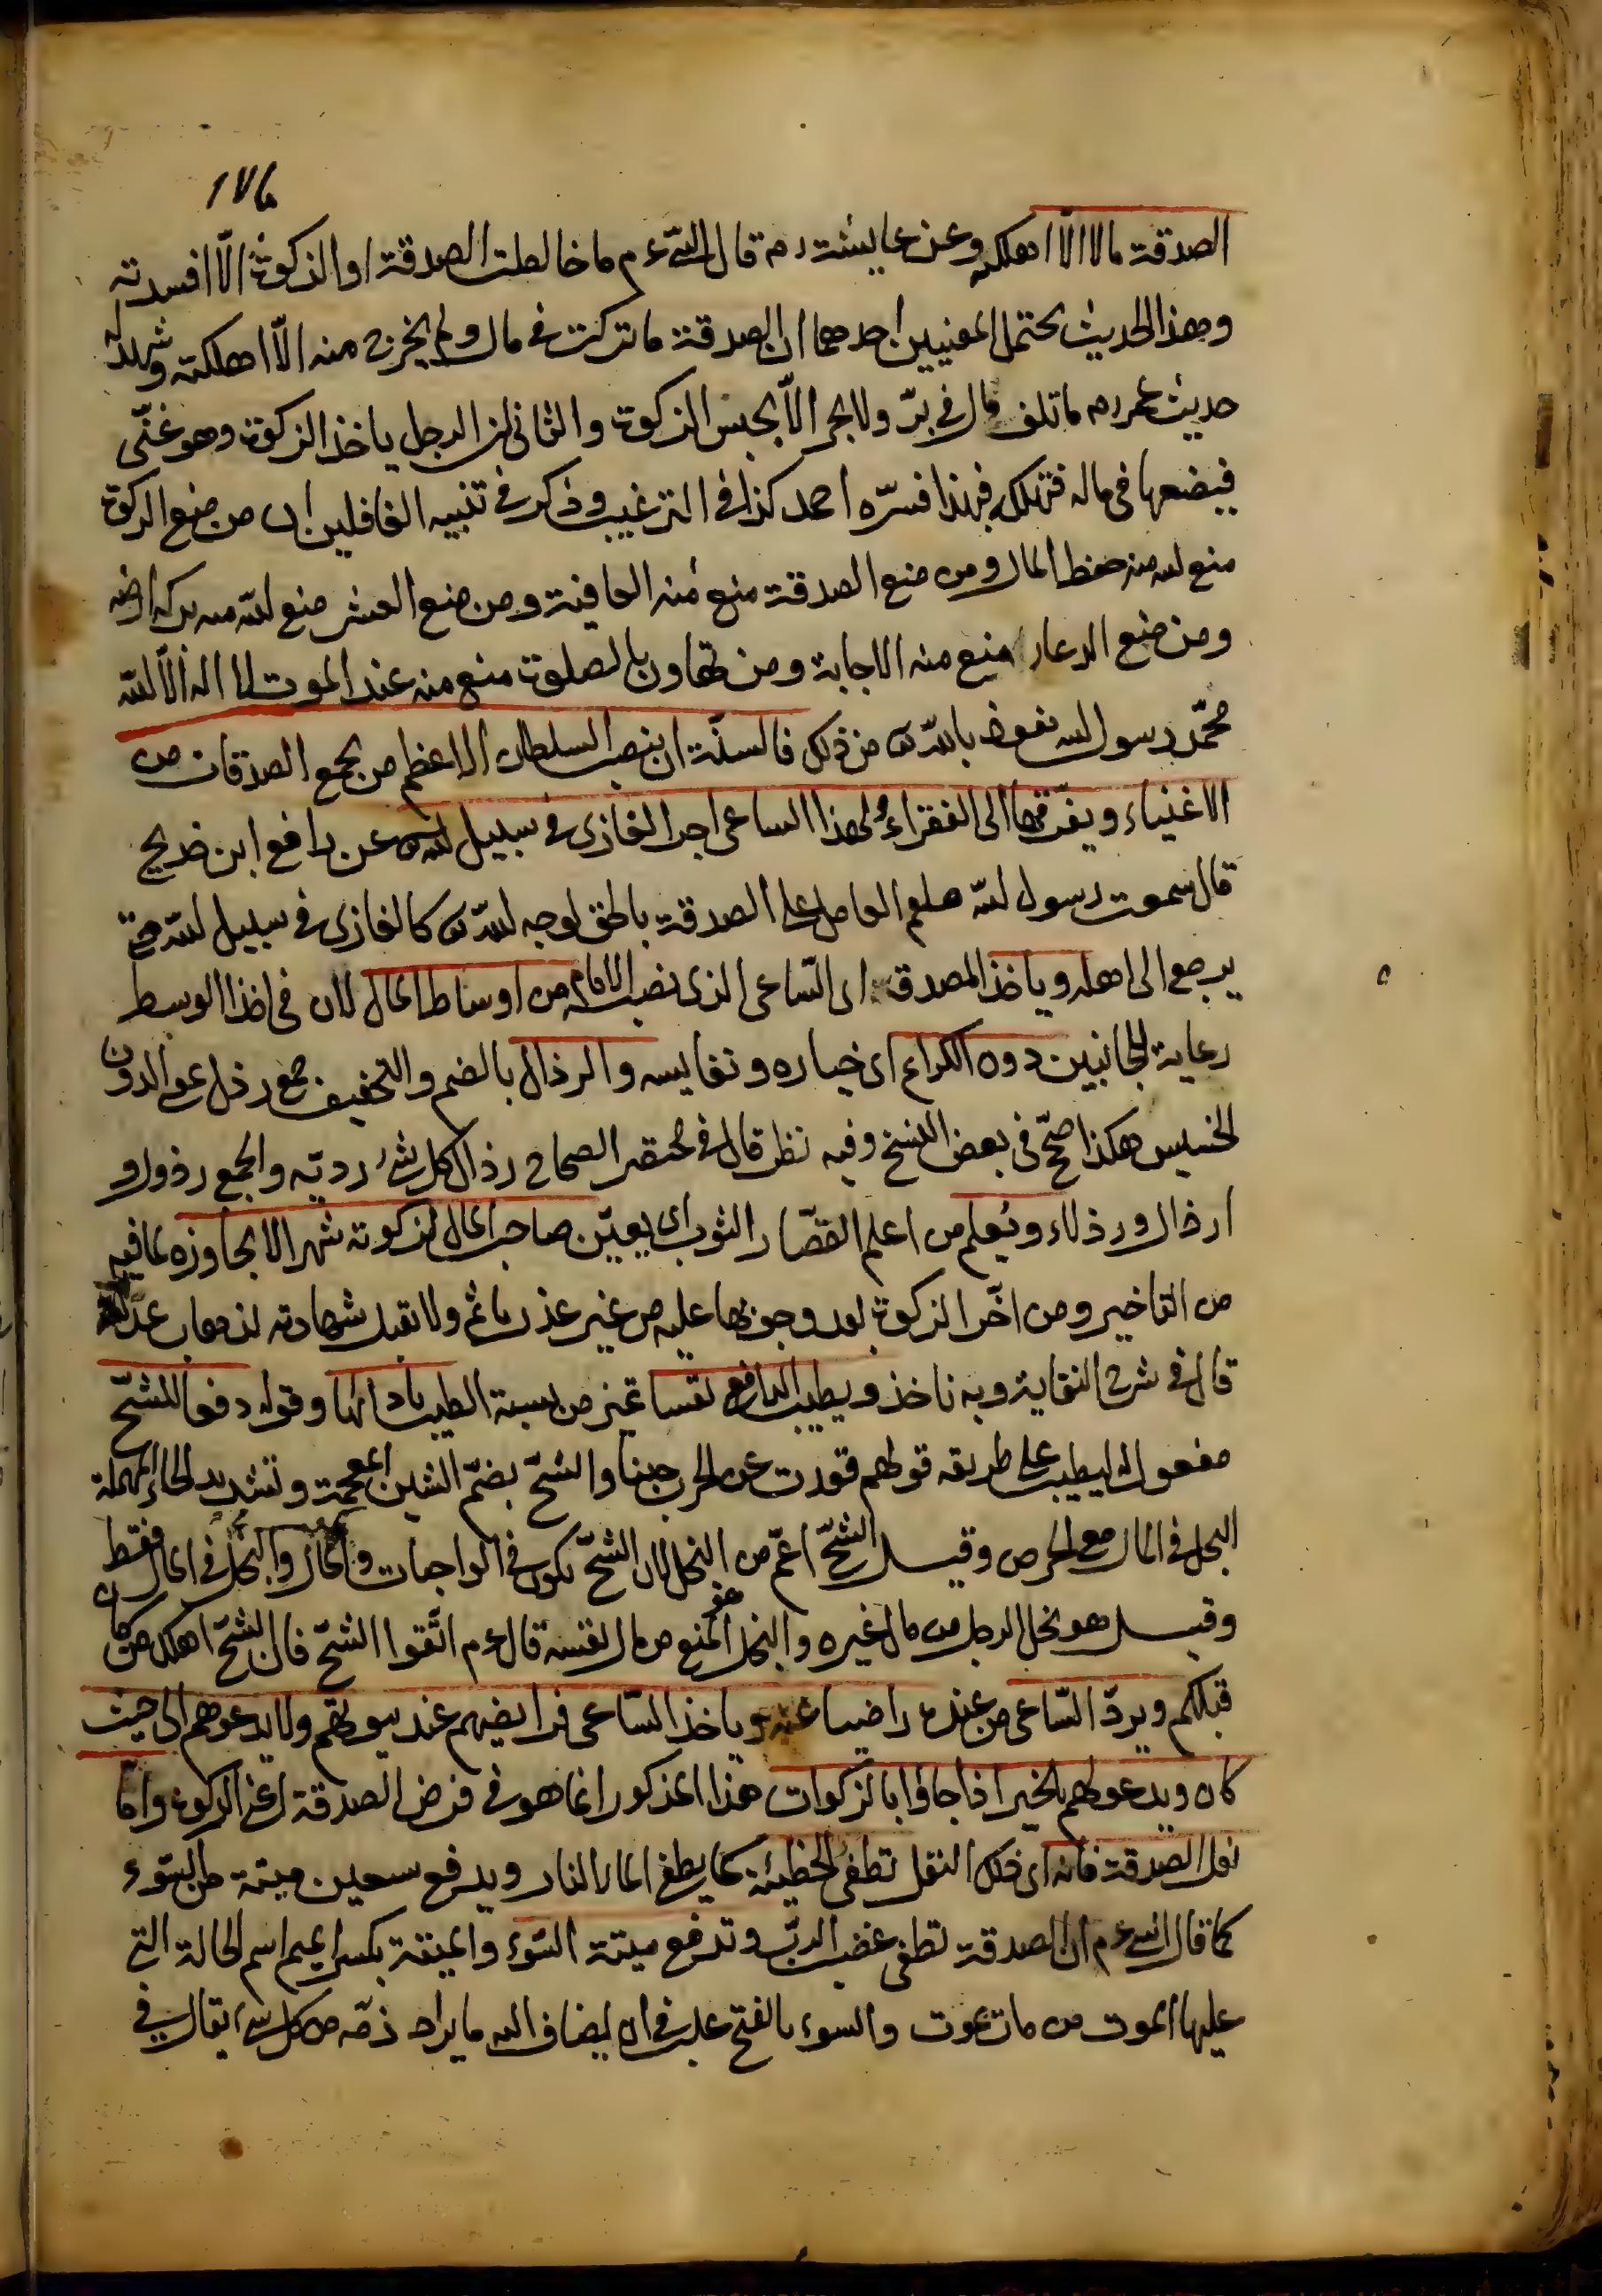 ١٧٤
الصدقة مالا الا اهلكته وعن عايشت رم قال النبى ءم ما خالطت الصدقة او الزكوة الّا افسدته
وهذا الحديث يحتمل المعنيين احدهما ان الصدقة ما تركت فى مال ولم يخرج منه الّا اهلكته ويشهد له
حديث عمر رم ما تلف مال فى برّ ولا بحر الّا بحبس الزكوة والثانى ان الرجل ياخذ الزكوة وهو غنّى
فيضعها فى ماله فتهلكه فبهذا فسّره احمد كذا فى الترغيب وذكر فى تنبيه الغافلين ان من منع الزكوة
منع الله منه حفظ المال ومن منع الصدقة منع منه العافية ومن منع العشر منع الله منه بركة ارضه
ومن منع الدعاء منع منه الاجابة ومن تهاون بالصلوة منع منه عند الموت لا اله الّا الله
محمّد رسول الله نعوذ بالله من ذلك فالسنّة ان ينصب السلطان الاعظم من يجمع الصدقات من
الاغنياء ويفرّقها الى الفقراء ولهذا الساعى اجر الغازى فى سبيل الله عن رافع ابن خديج
قال سمعت رسول الله صلعم العامل على الصدقة بالحق لوجه الله كالغازى فى سبيل الله حتى
يرجع الى اهله وياخذ المصدق اى السّاعى الذى نصبه الامام من اوساط المال لان فى اخذ الوسط
رعاية للجانبين دون الكرام اى خياره ونفايسه والرذال بالضم والتخفيف جمع رذل بمعنى الدون
الخسيس هكذا صحّ فى بعض النسخ وفيه نظر قال فى مختصر الصحاح رذال كل شئ رديّه والجمع رذول و
ارذال ورذلاء ويُعلم من اعلم القصّار الثوب اى يعيّن صاحب المال لزكوته شهرا لا يجاوزه لما فيه
من التاخير ومن اخّر الزكوة بعد وجوبها عليه من غير عذر ياثم ولا تقبل شهادته لذهاب عدالته
قال فى شرح النقاية وبه ناخذ ويطيب الدافع نفسا تميز من نسبة الطيب بادائها وقوله دفعا للشحّ
مفعول له ليطيب على طريقه قولهم قعدت عن الحرب جبنا والشحّ بضمّ الشين المعجمة وتشديد الحاء المهملة
البخل فى المال مع الحرص وقيل الشحّ اعمّ من البخل لان الشحّ يكون فى الواجبات والمال والبخل فى المال فقط
وقيل هو بخل الرجل من مال غيره والبخل هو المنع من مال نفسه قال ءم اتّقوا الشحّ فان الشحّ اهلك من كان
قبلكم ويردّ السّاعى من عنده راضيا عنه وياخذ السّاعى فرايضهم عند بيوتهم ولا يدعوهم الى حيث
كان ويدعو لهم بالخير اذا جاؤا بالزكوات هذا المذكور انما هو فى فرض الصدقة اعنى الزكوة وامّا
نفل الصدقة فانه اى ذلك النفل تطفى الخطيئة كما يطفى الماء النار ويدفع سبعين ميتة من السّوء
كما قال النبى ءم ان الصدقة تطفى غضب الربّ وتدفع ميتة السّوء والميتة بكسر الميم اسم الحالة التى
عليها الموت من مات يموت والسوء بالفتح غلب فى ان يضاف اليه ما يراد ذمّه من كل شئ يقال فى